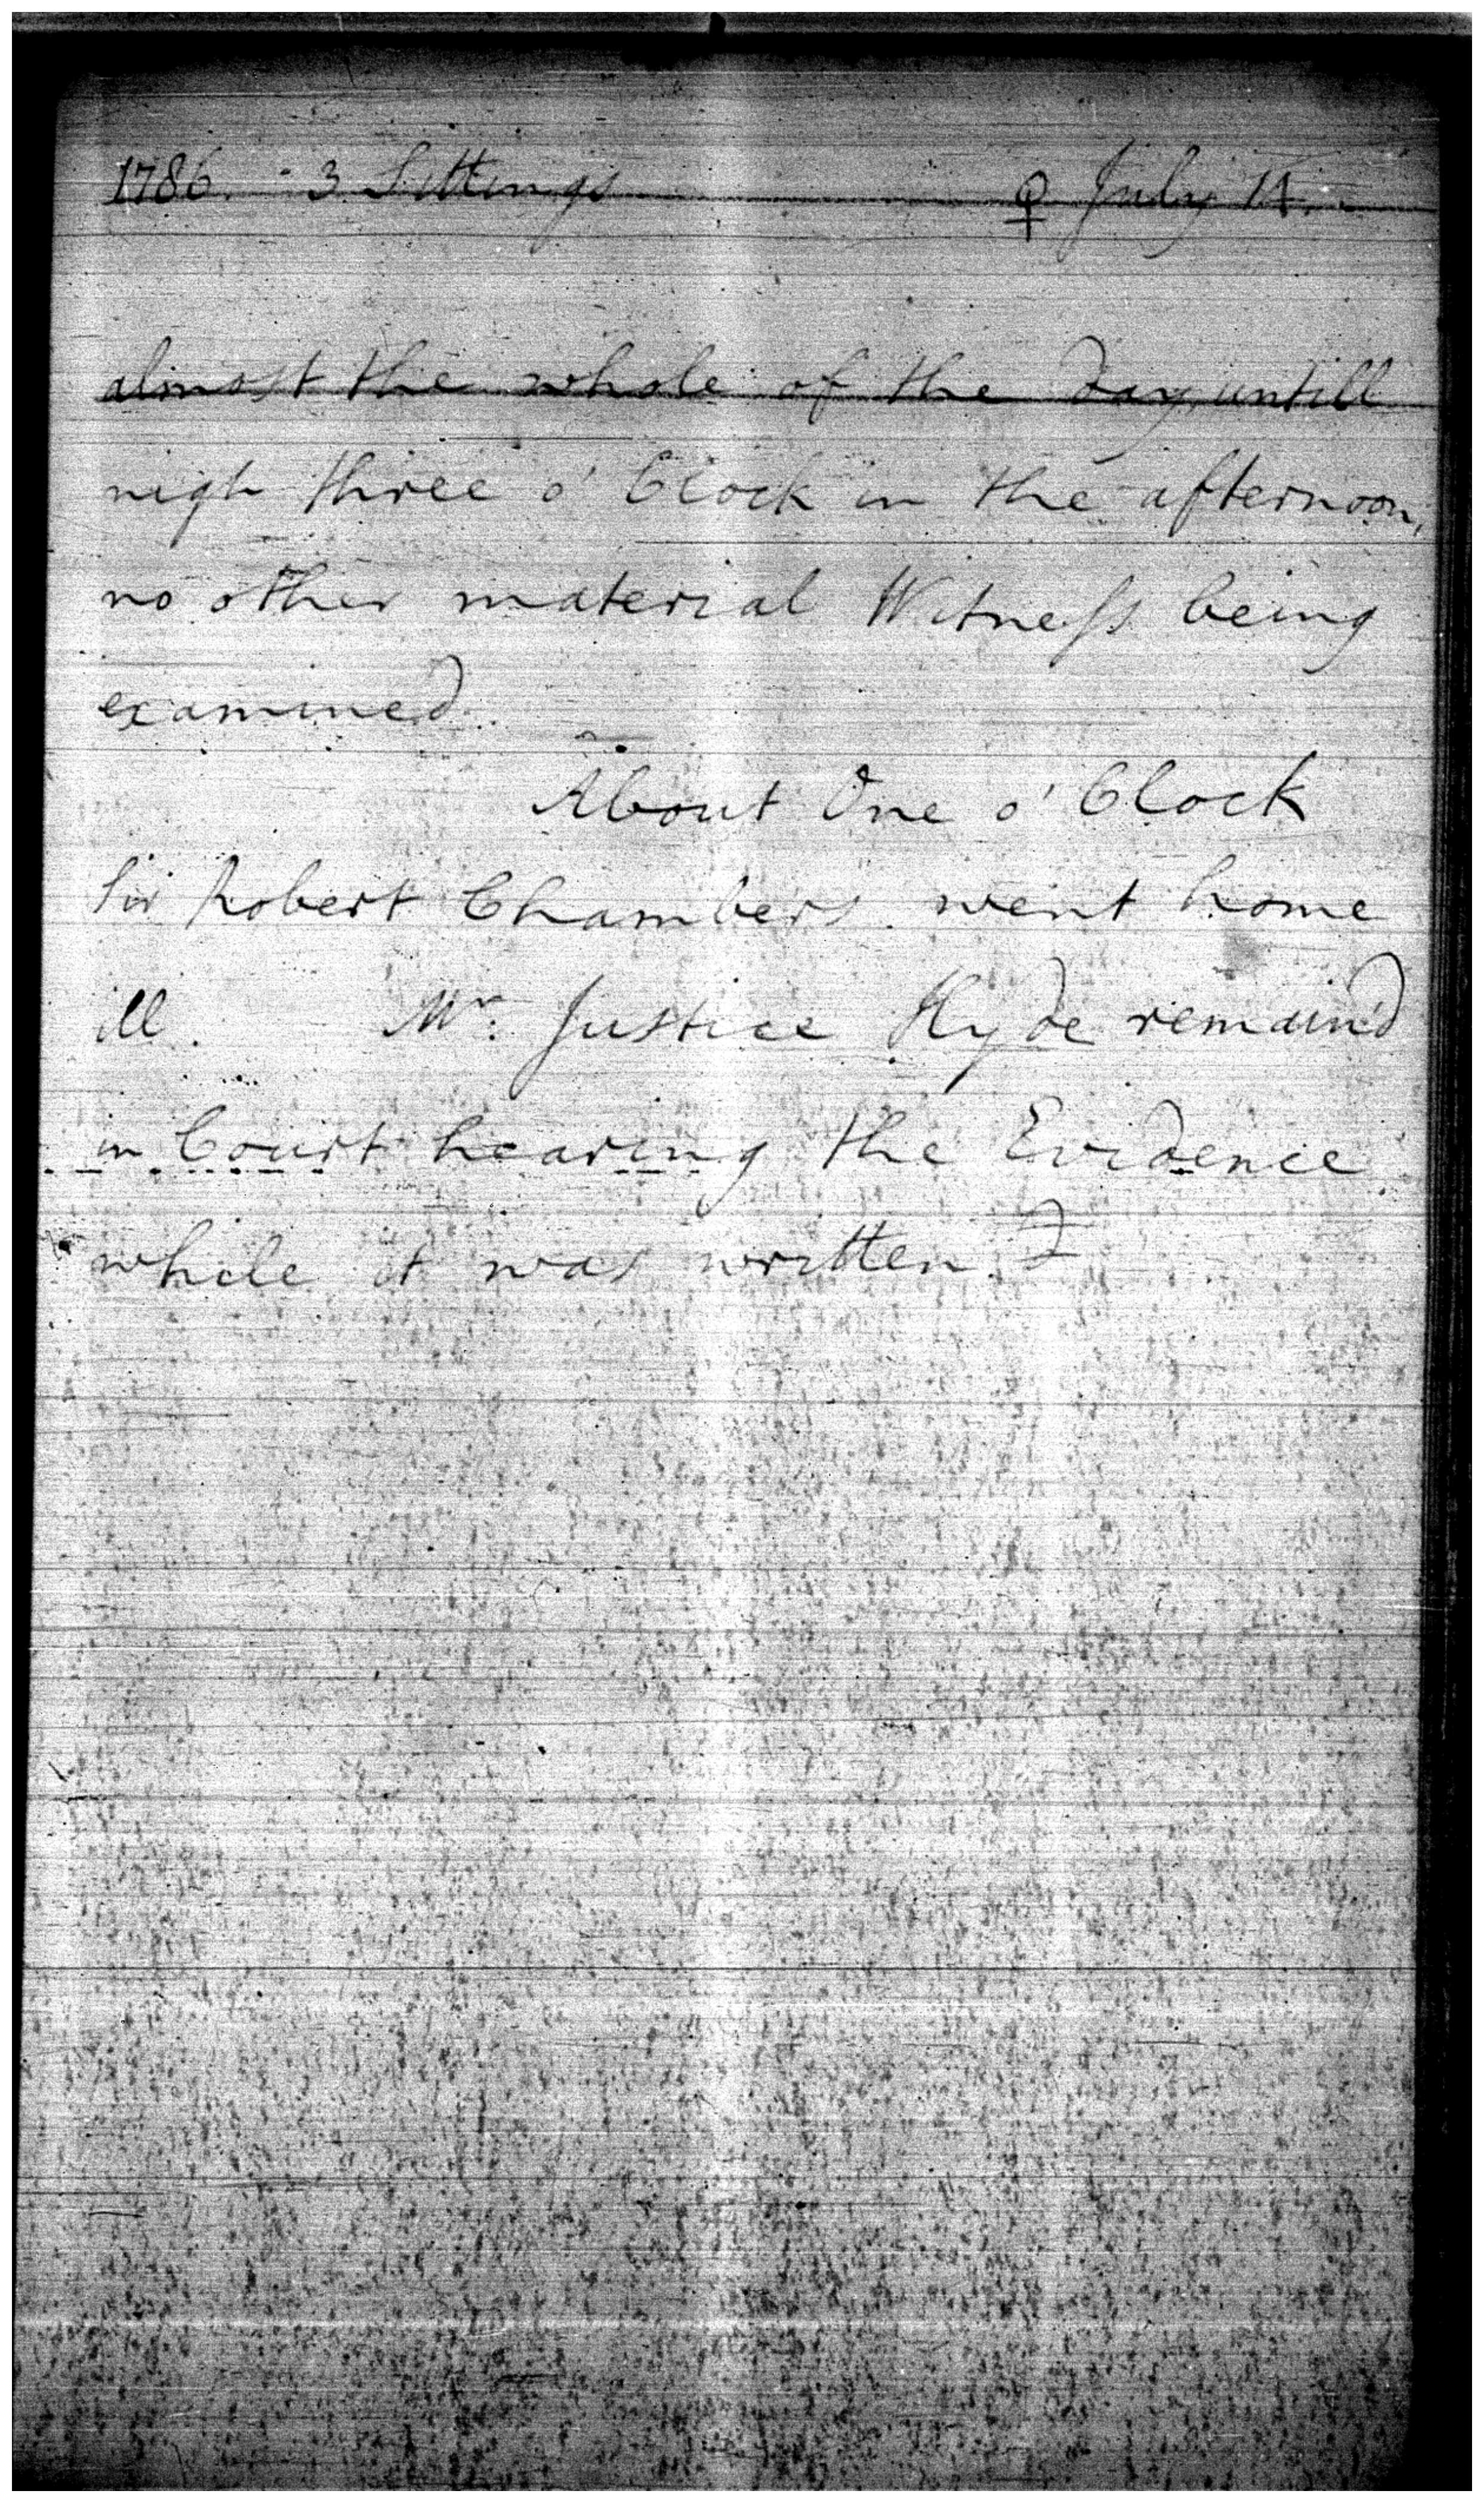 1786. 3 Sittings ♀ July 14.
almost the whole of the day, untill
nigh three o' Clock in the afternoon,
no other material Witness being
examined.
About One o' Clock
Sir Robert Chambers went home
ill. Mr. Justice Hyde remain'd
in Court hearing the Evidence
while it was written.